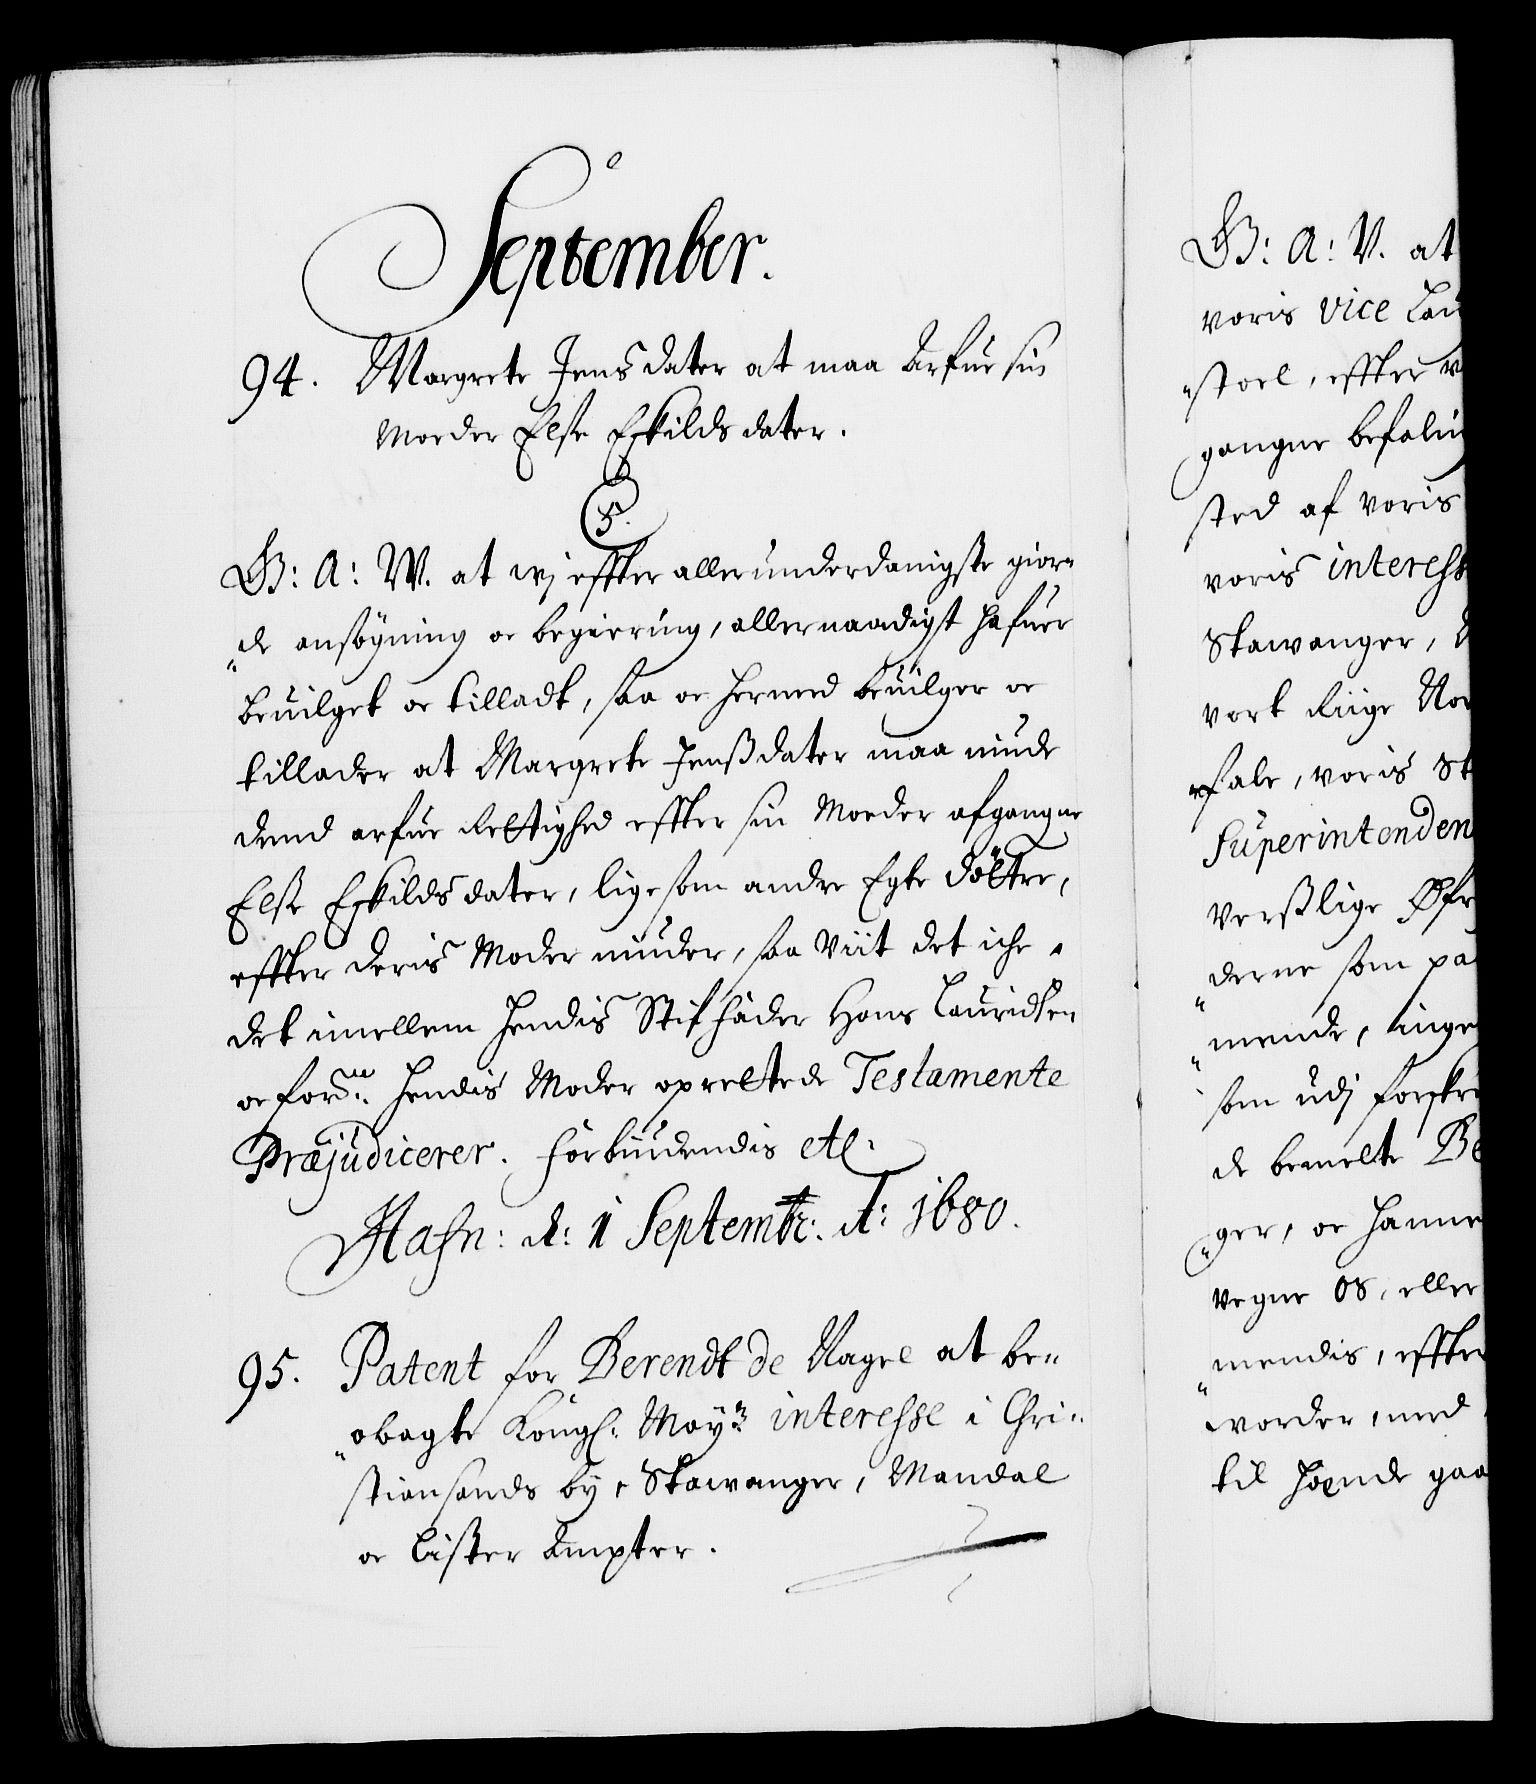 September.
94. Margrete Jensdater at maa Arfue sin
Moeder Else Eskilds dater.
5.
G: A: W. at wj effter allerunderdanigste gior„
„de ansøgning oc begiering, allernaadigst hafuer
beuilget oc tilladt, saa oc hermed beuilger oc
tillader at Margrete Jenßdater maa niude
dend arfue Rettighed effter sin Moeder afgangne
Elße Eskilds dater, lige som andre Egte døttre,
effter deris Moder niuder, saa Viit det iche
det imellem hendis Stiffader Hans Lauridsen
oc for.ne hendis Moder oprettede Testamente
Præjudicerer. Forbiudendis etc.
Hafn: d: 1 Septembr: A: 1680.
95. Patent for Berendt de Nagel at be„
„obagte Kongl: Mayts interesse i Chri„
stiansands by, Stawanger, Mandal
oc Lister Ampter.
G: A: V. at
voris vice
„stoel, effter
gangne befali
sted af voris
voris interess
Stawanger,
vort Riige Nor
„fale, voris St
Superintenden
Verßlige Øfr
„derne som pa
„mende, inge
som udj forskr
de bemelte Be
„ger, oc hanne
Vegne os, eller
„mendis, effter
worder, med
til hænde gaa